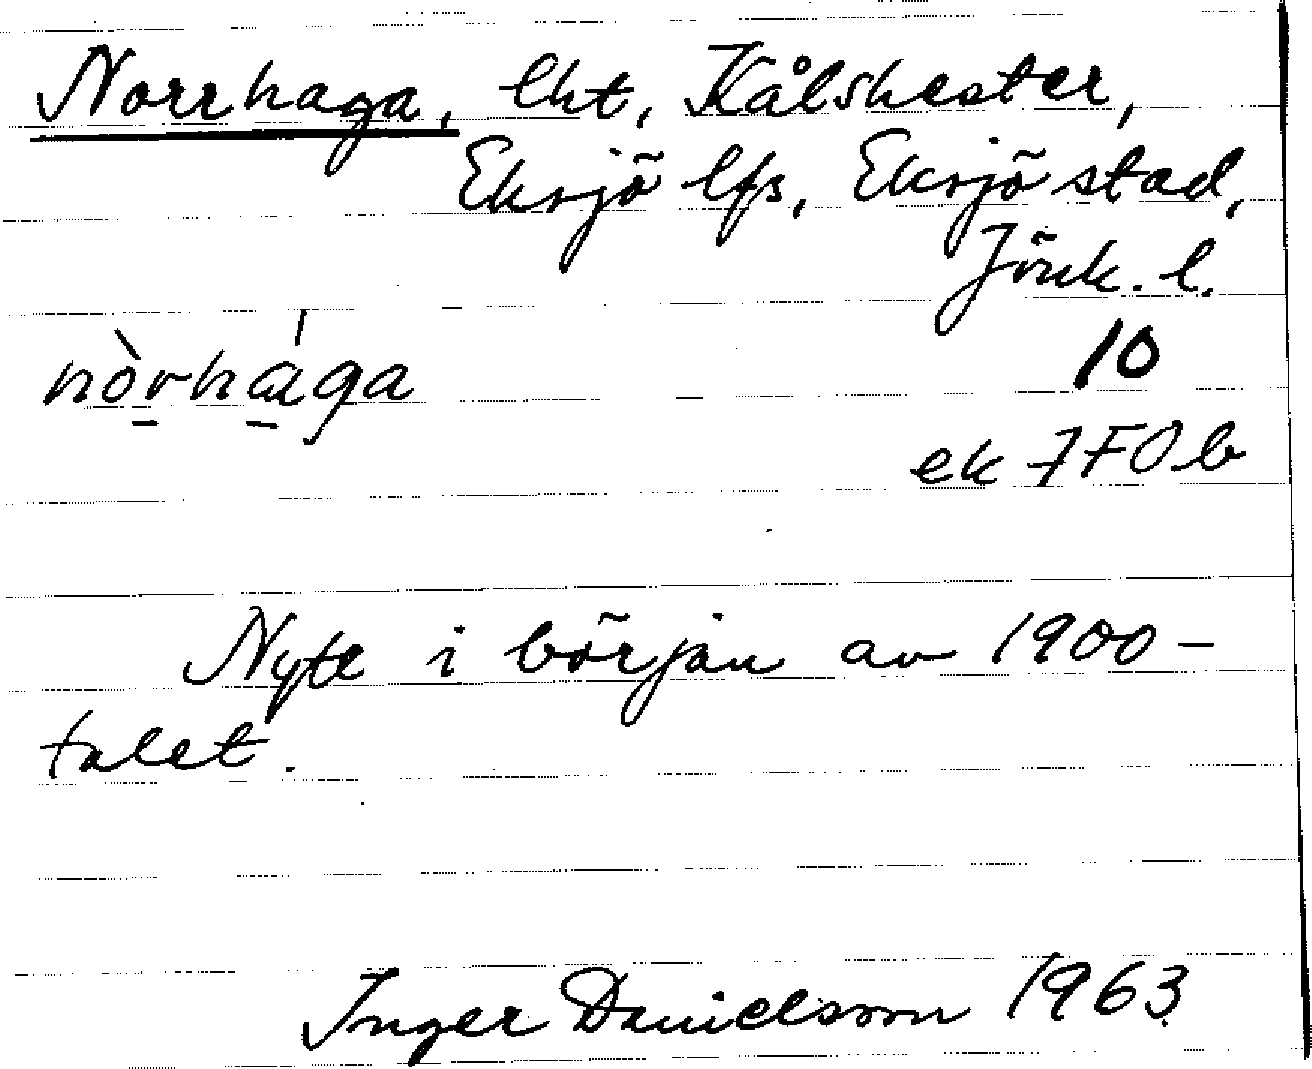 Norrhaga, lht, Kålshester,
Eksjö lfs, Eksjö stad,
Jönk. l.
nòrhága
10
ek 7F0b
Nytt i början av 1900-
talet.
Inger Danielsson 1963